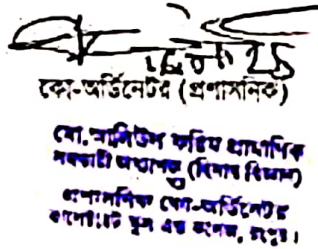 কো-অর্ডিনেটর (প্রশাসনিক)
মো. আনিউল করিম প্রামাণিক
সহকারী অধ্যাপক (হিসাব বিজ্ঞান)
প্রশাসনিক কো-অর্ডিনেটর
কালেক্টরেট স্কুল এন্ড কলেজ, রংপুর।